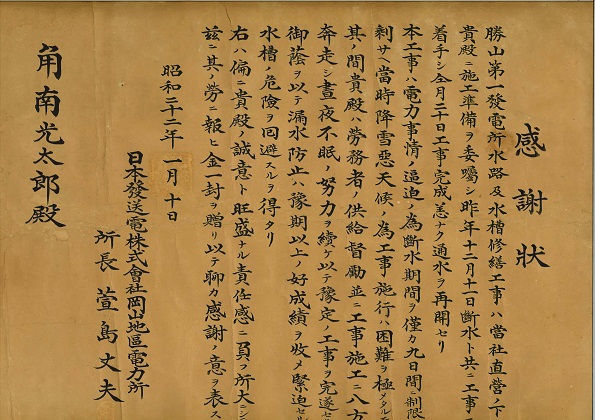 感謝狀
勝山第一發電所水路及水槽修繕工事ハ當社直營ノ下
貴殿ニ施工準備ヲ委囑シ昨年十二月十一日斷水ト共ニ工事ニ
着手シ仝月二十日工事完成恙ナク通水ヲ再開セリ
本工事ハ電力事情ノ逼迫ノ為斷水期間ヲ僅カ九日間ニ制限
剩サヘ當時降雪惡天候ノ為工事施行ハ困難ヲ極メタルモ
其ノ間貴殿ハ勞務者ノ供給督勵並ニ工事施工ニ八方
奔走シ晝夜不眠ノ努力ヲ續ケ以テ豫定ノ工事ヲ完遂セ
御蔭ヲ以テ漏水防止ハ豫期以上ノ好成績ヲ收メ緊迫セル
水槽ノ危險ヲ回避スルヲ得タリ
右ハ偏ニ貴殿ノ誠意ト旺盛ナル責任感ニ負フ所大ニシ
玆ニ其ノ勞ニ報ヒ金一封ヲ贈リ以テ聊カ感謝ノ意ヲ表ス
昭和二十二年一月十日
日本發送電株式會社岡山地區電力所
所長 萱島丈夫
角南光太郎殿